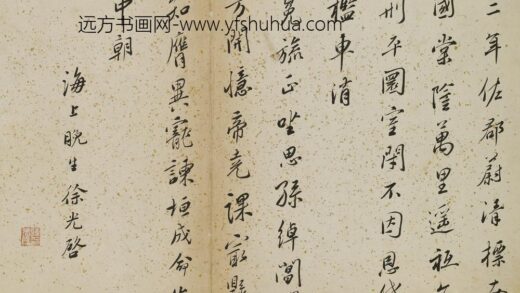 远方书画网- www.yfshuhua.com
二年佐郡蔚清標
國棠陰萬里遥
刑平圜室閑不因恩
檻車消
旒正坐思孫綽
開憶帝堯課最
知膺異寵諫垣成命
中朝
海上晚生徐光啓